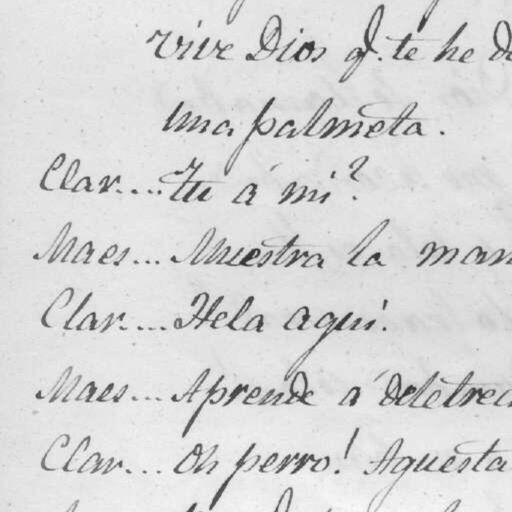 vive Dios q.e te he d
una palmeta.
Clar.... tu á mi?
Maes... Muestra la man
Clar.... Hela aqui.
Maes... Aprende á deletrea
Clar... Oh perro! Aquesta